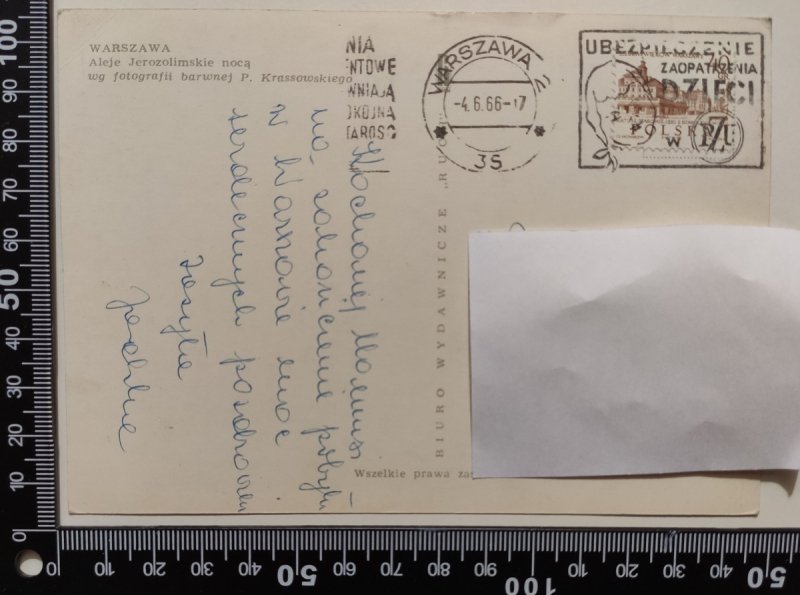 WARSZAWA
Aleje Jerozolimskie nocą
wg fotografii barwnej P. Krassowskiego
NIA
NTOWE
WNIAJĄ
OKOJNĄ
TAROŚĆ
WARSZAWA 2
-4.6.66-17
35
UBEZPIECZENIE
ZAOPATRZENIA
DZIECI
W
POLSKA
Kochanej Mamusi
na zakończenie pobytu
w Warszawie moc
serdecznych pozdrowień
zasyła
BIURO WYDAWNICZE „RUCH"
Wszelkie prawa zas
100
90
80
70
60
50
40
30
20
10
0
0
10
20
30
40
50
60
70
80
90
100
10
20
30
40
50